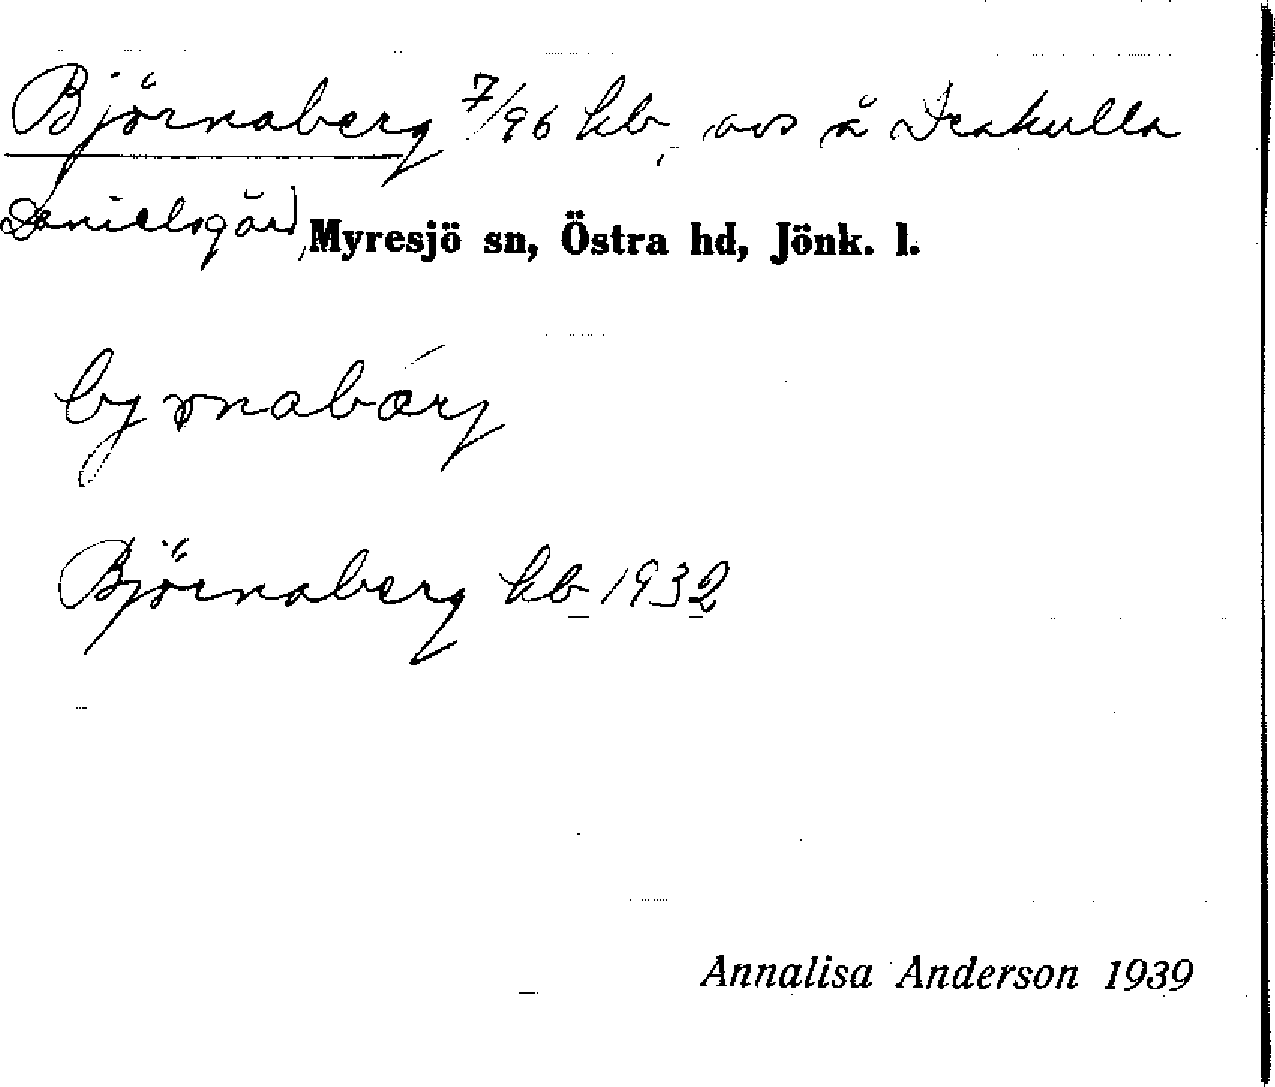 Björnaberg 7/96 kb, avs å Drakulla
Danielsgård, Myresjö sn, Östra hd, Jönk. l.
bjørnabærj
Björnaberg kb 1932
Annalisa Anderson 1939